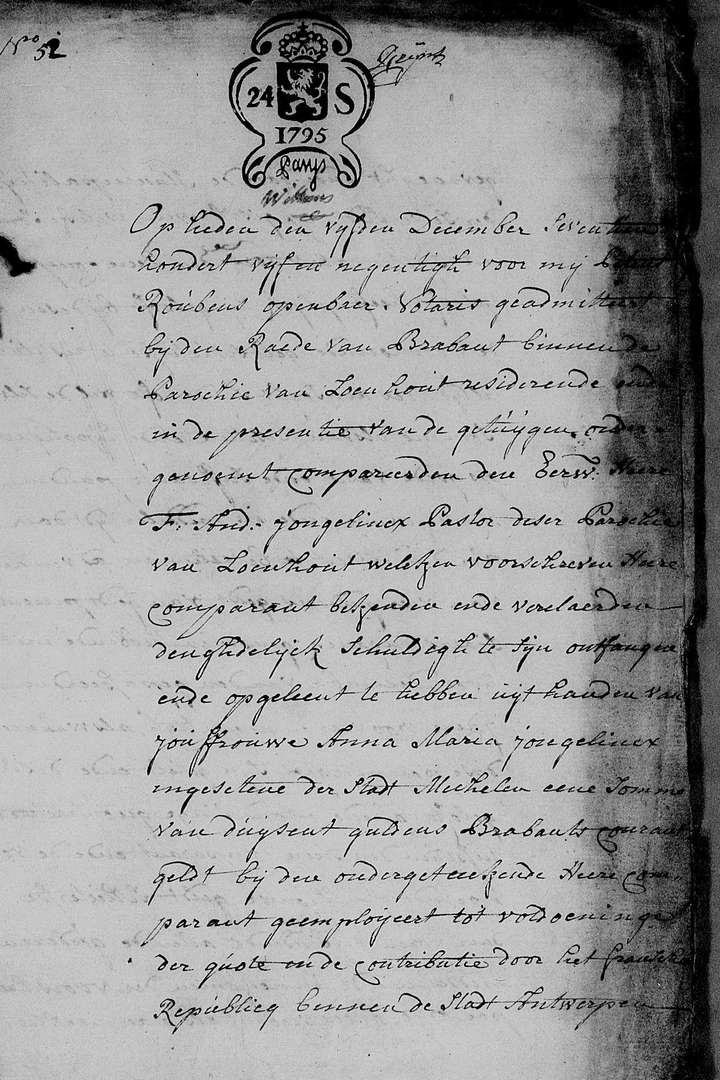 No 52
24 S
1795
Op heden den vijfden December Seventhien
hondert vijf en negentigh voor mij
Roúbens openbaer Notaris geadmitteert
bij den Raede van Brabant binnen de
Parochie van Loenhout residerende ende
in de presentie van de getúÿgen onder
genoemt compareerden den Eerw: Heere
F: And: jongelinex Pastor deser Parochie
van Loenhout welcken voorschreven Heere
comparant bekenden ende verclaerden
deughdelijck schuldigh te sijn ontfangen
ende opgeleent te hebben uijt handen van
joúffrouwe Anna Maria jongelinex
ingesetene der Stadt Mechelen eene Somme
van dúÿsent guldens Brabants courant
geldt bij den ondergeteekende Heere com
parant geemploijeert tot voldoeninge
der qúote ende contributie door het fransche
Repúblicq binnen de Stadt Antwerpen